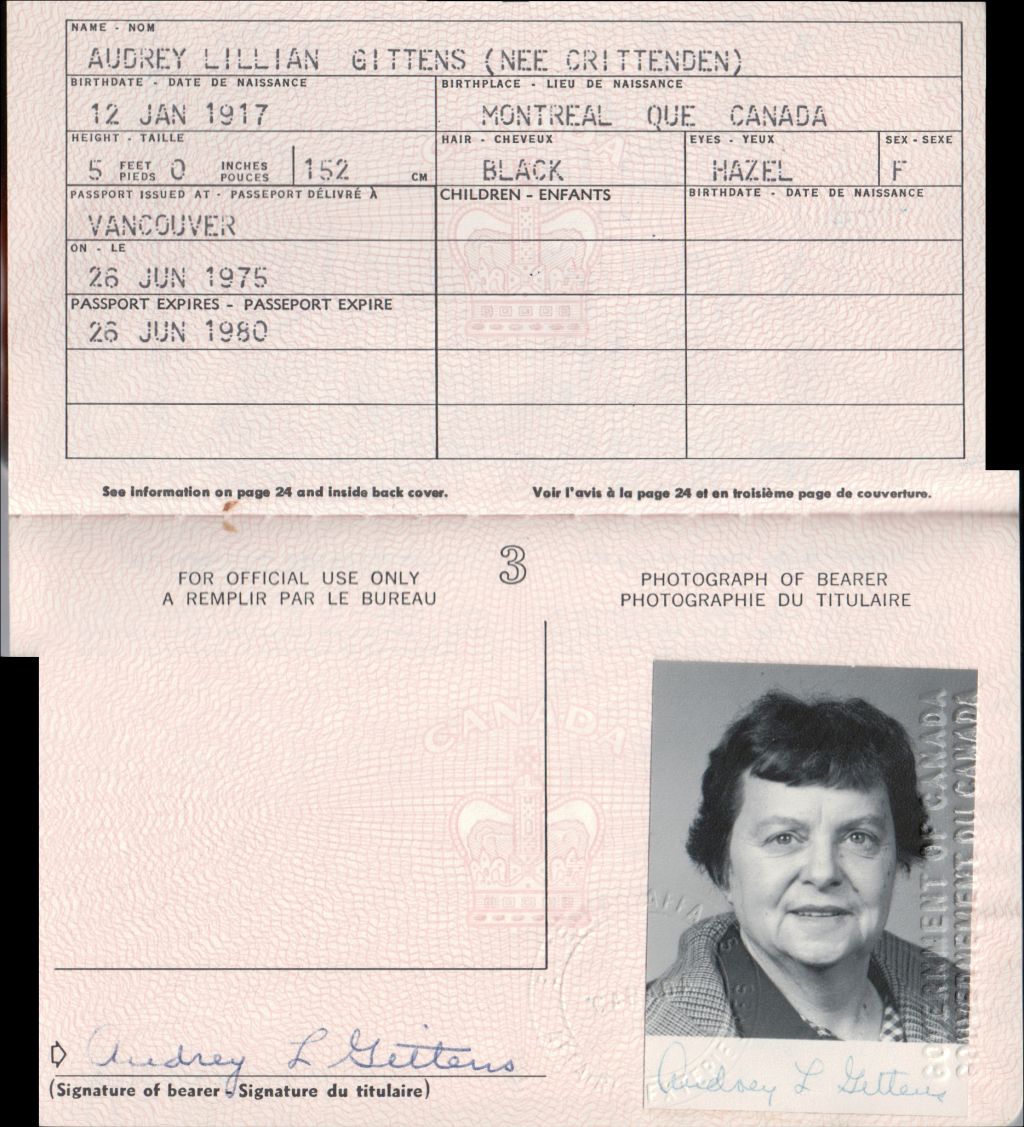 NAME - NOM
AUDREY LILLIAN GITTENS (NEE CRITTENDEN)
BIRTHDATE - DATE DE NAISSANCE
12 JAN 1917
BIRTHPLACE - LIEU DE NAISSANCE
MONTREAL QUE CANADA
HEIGHT - TAILLE
5 FEET PIEDS 0 INCHES POUCES 152 CM
HAIR - CHEVEUX
BLACK
EYES - YEUX
HAZEL
SEX - SEXE
F
PASSPORT ISSUED AT - PASSEPORT DÉLIVRÉ À
VANCOUVER
CHILDREN - ENFANTS
BIRTHDATE - DATE DE NAISSANCE
ON - LE
26 JUN 1975
PASSPORT EXPIRES - PASSEPORT EXPIRE
26 JUN 1980
See information on page 24 and inside back cover.
Voir l'avis à la page 24 et en troisième page de couverture.
3
FOR OFFICIAL USE ONLY
A REMPLIR PAR LE BUREAU
PHOTOGRAPH OF BEARER
PHOTOGRAPHIE DU TITULAIRE
CANADA
GOVERNMENT OF CANADA
GOUVERNEMENT DU CANADA
Audrey L Gittens
(Signature of bearer - Signature du titulaire)
Audrey L Gittens